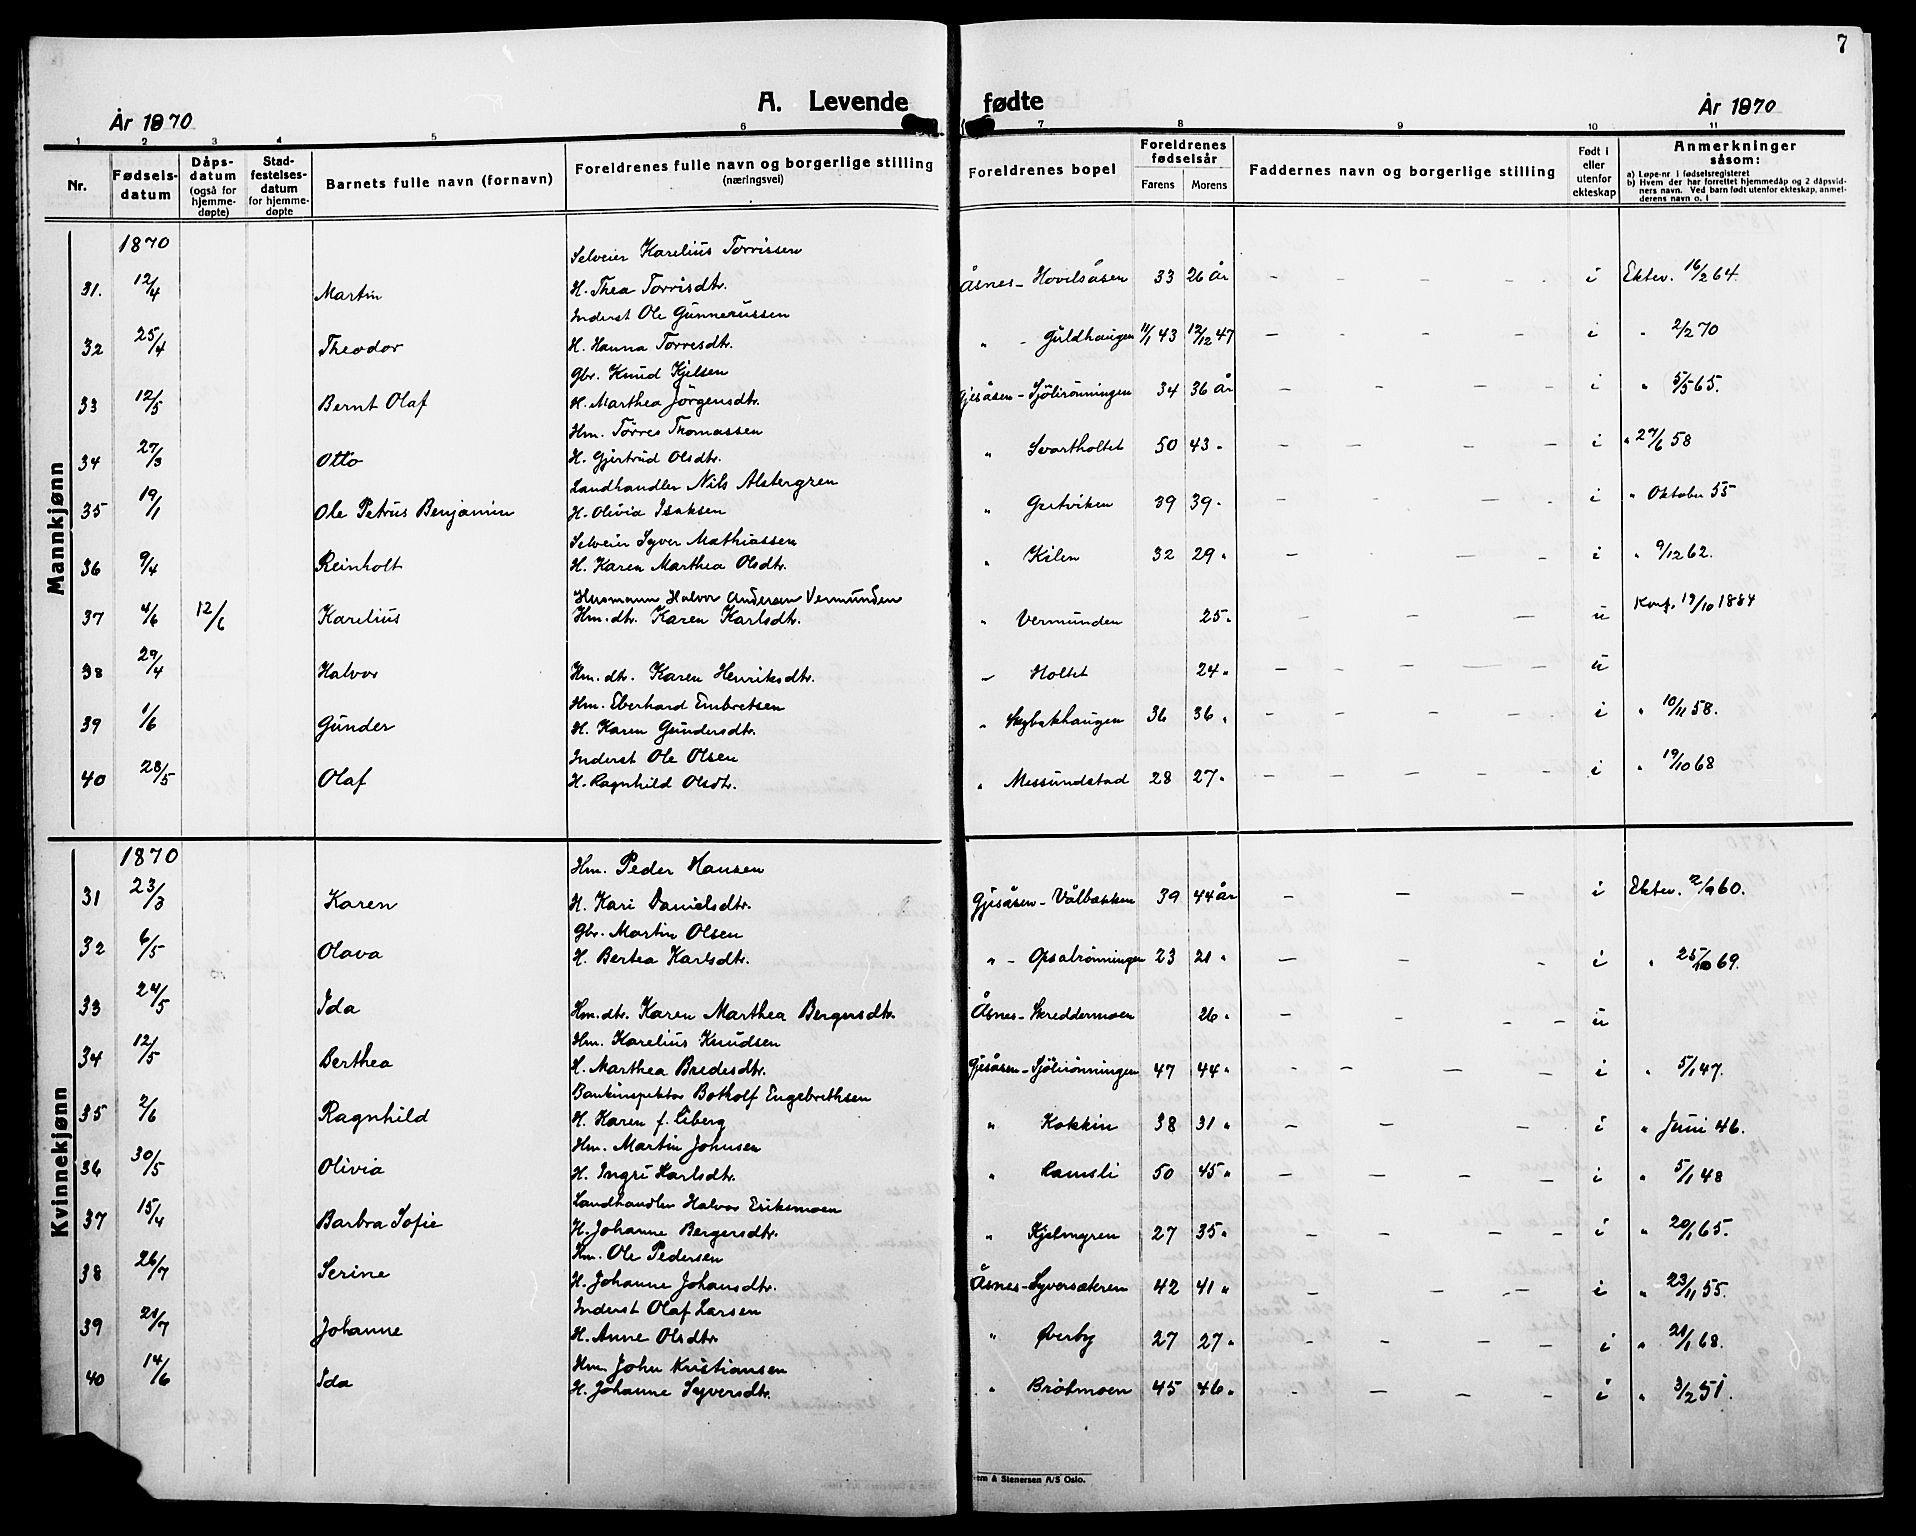 7
A. Levende fødte
År 1870
År 1870
1 2 3 4 5 6 7 8 9 10 11
Nr.
Fødselsdatum
Dåpsdatum (også for hjemmedøpte)
Stadfestelsesdatum for hjemmedøpte
Barnets fulle navn (fornavn)
Foreldrenes fulle navn og borgerlige stilling (næringsvei)
Foreldrenes bopel
Foreldrenes fødselsår
Farens Morens
Faddernes navn og borgerlige stilling
Født i eller utenfor ekteskap
Anmerkninger såsom:
a) Løpe-nr. i fødselsregisteret
b) Hvem der har forrettet hjemmedåp og 2 dåpsvidners navn. Ved barn født utenfor ekteskap, anmelderens navn o. l
Mannkjønn
1870
Selveier Karelius Torrissen
31. 12/4 Martin H. Thea Torrisdtr. Åsnes - Hovilsåsen 33 26 år - - - - - i Ektev. 16/2 64.
Inderst Ole Gunnerussen
32 25/4 Theodor H. Hanna Torresdtr. " - Guldhaugen 11/1 43 12/12 47 - - - - - i " 2/2 70
Gbr. Knud Kjelsen
33 12/5 Bernt Olaf H. Marthea Jörgensdtr. Gjesåsen - Sjölirönningen 34 36 år - - - - i " 5/5 65.
Hm. Törres Thomassen
34 27/3 Otto H. Gjertrud Olsdtr. " Svartholtet 50 43 " - - - - i " 29/6 58
Landhandler Nils Alstergren
35 19/1 Ole Petrus Benjamin H. Olivia Isaksen " Gretviken 39 39 " - - - - i " Oktober 55
Selveier Syver Mathiassen
36 9/4 Reinholt H. Karen Marthea Olsdtr. " Kilen 32 29 " - - - i " 9/12 62.
Husmann Halvor Andersen Vermunden
37 4/6 12/6 Karelius Hm. dtr. Karen Karlsdtr. " Vermunden 25 " - - - - u Konf. 19/10 1884
38 29/4 Halvor Hm. dtr. Karen Henriksdtr. " Holtet 24 " - - - - - u
Hm. Eberhard Embretsen
39 1/6 Gunder H. Karen Gundersdtr. " Skybakhaugen 36 36 " - - - - - i " 10/11 58.
Inderst Ole Olsen
40 28/5 Olaf H. Ragnhild Olsdtr. " Messundstad 28 27 " - - - - - - i " 19/10 68
Kvinnekjønn
1870
Hm. Peder Hansen
31 23/3 Karen H. Kari Danielsdtr. Gjesåsen - Vålbakken 39 44 år - - - i Ektev. 2/9 60.
Gbr. Martin Olsen
32 6/5 Olava H. Bertea Karlsdtr. " - Opsalrönningen 23 21 " - - - - i " 25/10 69.
33 24/5 Ida Hm. dtr. Karen Marthea Bergersdtr. Åsnes - Skreddermoen 26 " - - - - u
Hm. Karelius Knudsen
34 12/5 Berthea H. Marthea Bredesdtr. Gjesåsen - Sjölirönningen 47 44 " - - - - i " 5/1 47.
Bankinspektör Botholf Engebrethsen
35 2/6 Ragnhild H. Karen f. Liberg " Kokkin 38 31 " - - - - i " Juni 46.
Hm. Martin Johnsen
36 30/5 Olivia H. Ingri Karlsdtr. " Ramsli 50 45 " - - - - i " 5/1 48
Landhandler Halvor Eriksmoen
37 15/4 Barbra Sofie H. Johanne Bergersdtr. " Kjelmyren 27 35 " - - - - i " 20/1 65.
Hm. Ole Pedersen
38 26/7 Serine H. Johanne Johansdtr. Åsnes - Syversæteren 42 41 " - - - - i " 23/11 55.
Inderst Olaf Larsen
39 21/7 Johanne H. Anne Olsdtr. " Øverby 27 27 " - - - - i " 21/1 68.
Hm. John Kristiansen
40 14/6 Ida H. Johanne Syversdtr. " Bråtmoen 45 46 " - - - - i " 3/2 51.
& Stenersen A/S Oslo.